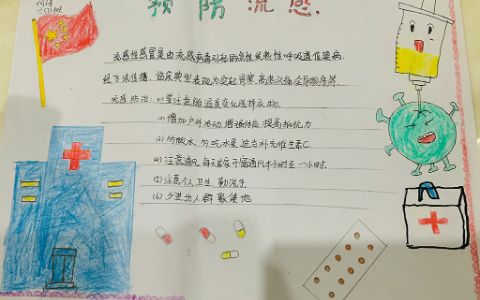 预防流感
流感性感冒是由流感病毒引起的急性发热性呼吸道传染病.
经飞沫传播,临床典型表现为突起畏寒、高热、头痛、全身酸疼.
流感防治:(1)要注意随温度变化增排衣物。
(2)增加户外活动,增强体质,提高抵抗力
(3)多喝水,多吃水果,适当补充维生素C
(4)注意通风,每天
(5)注意个人卫生,勤洗手
(6)少进出人群聚集地